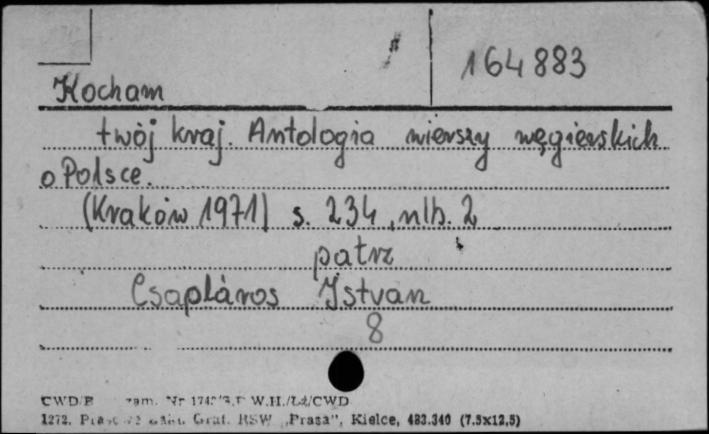 164883
Kocham
twój kraj. Antologia wierszy węgierskich
o Polsce.
(Kraków 1971) s. 234, nlb. 2
patrz
Csapláros Istvan
8
zam. Nr W.H./Ld/CWD
1272. Graf. RSW „Prasa", Kielce, 483.340 (7.5x12,5)